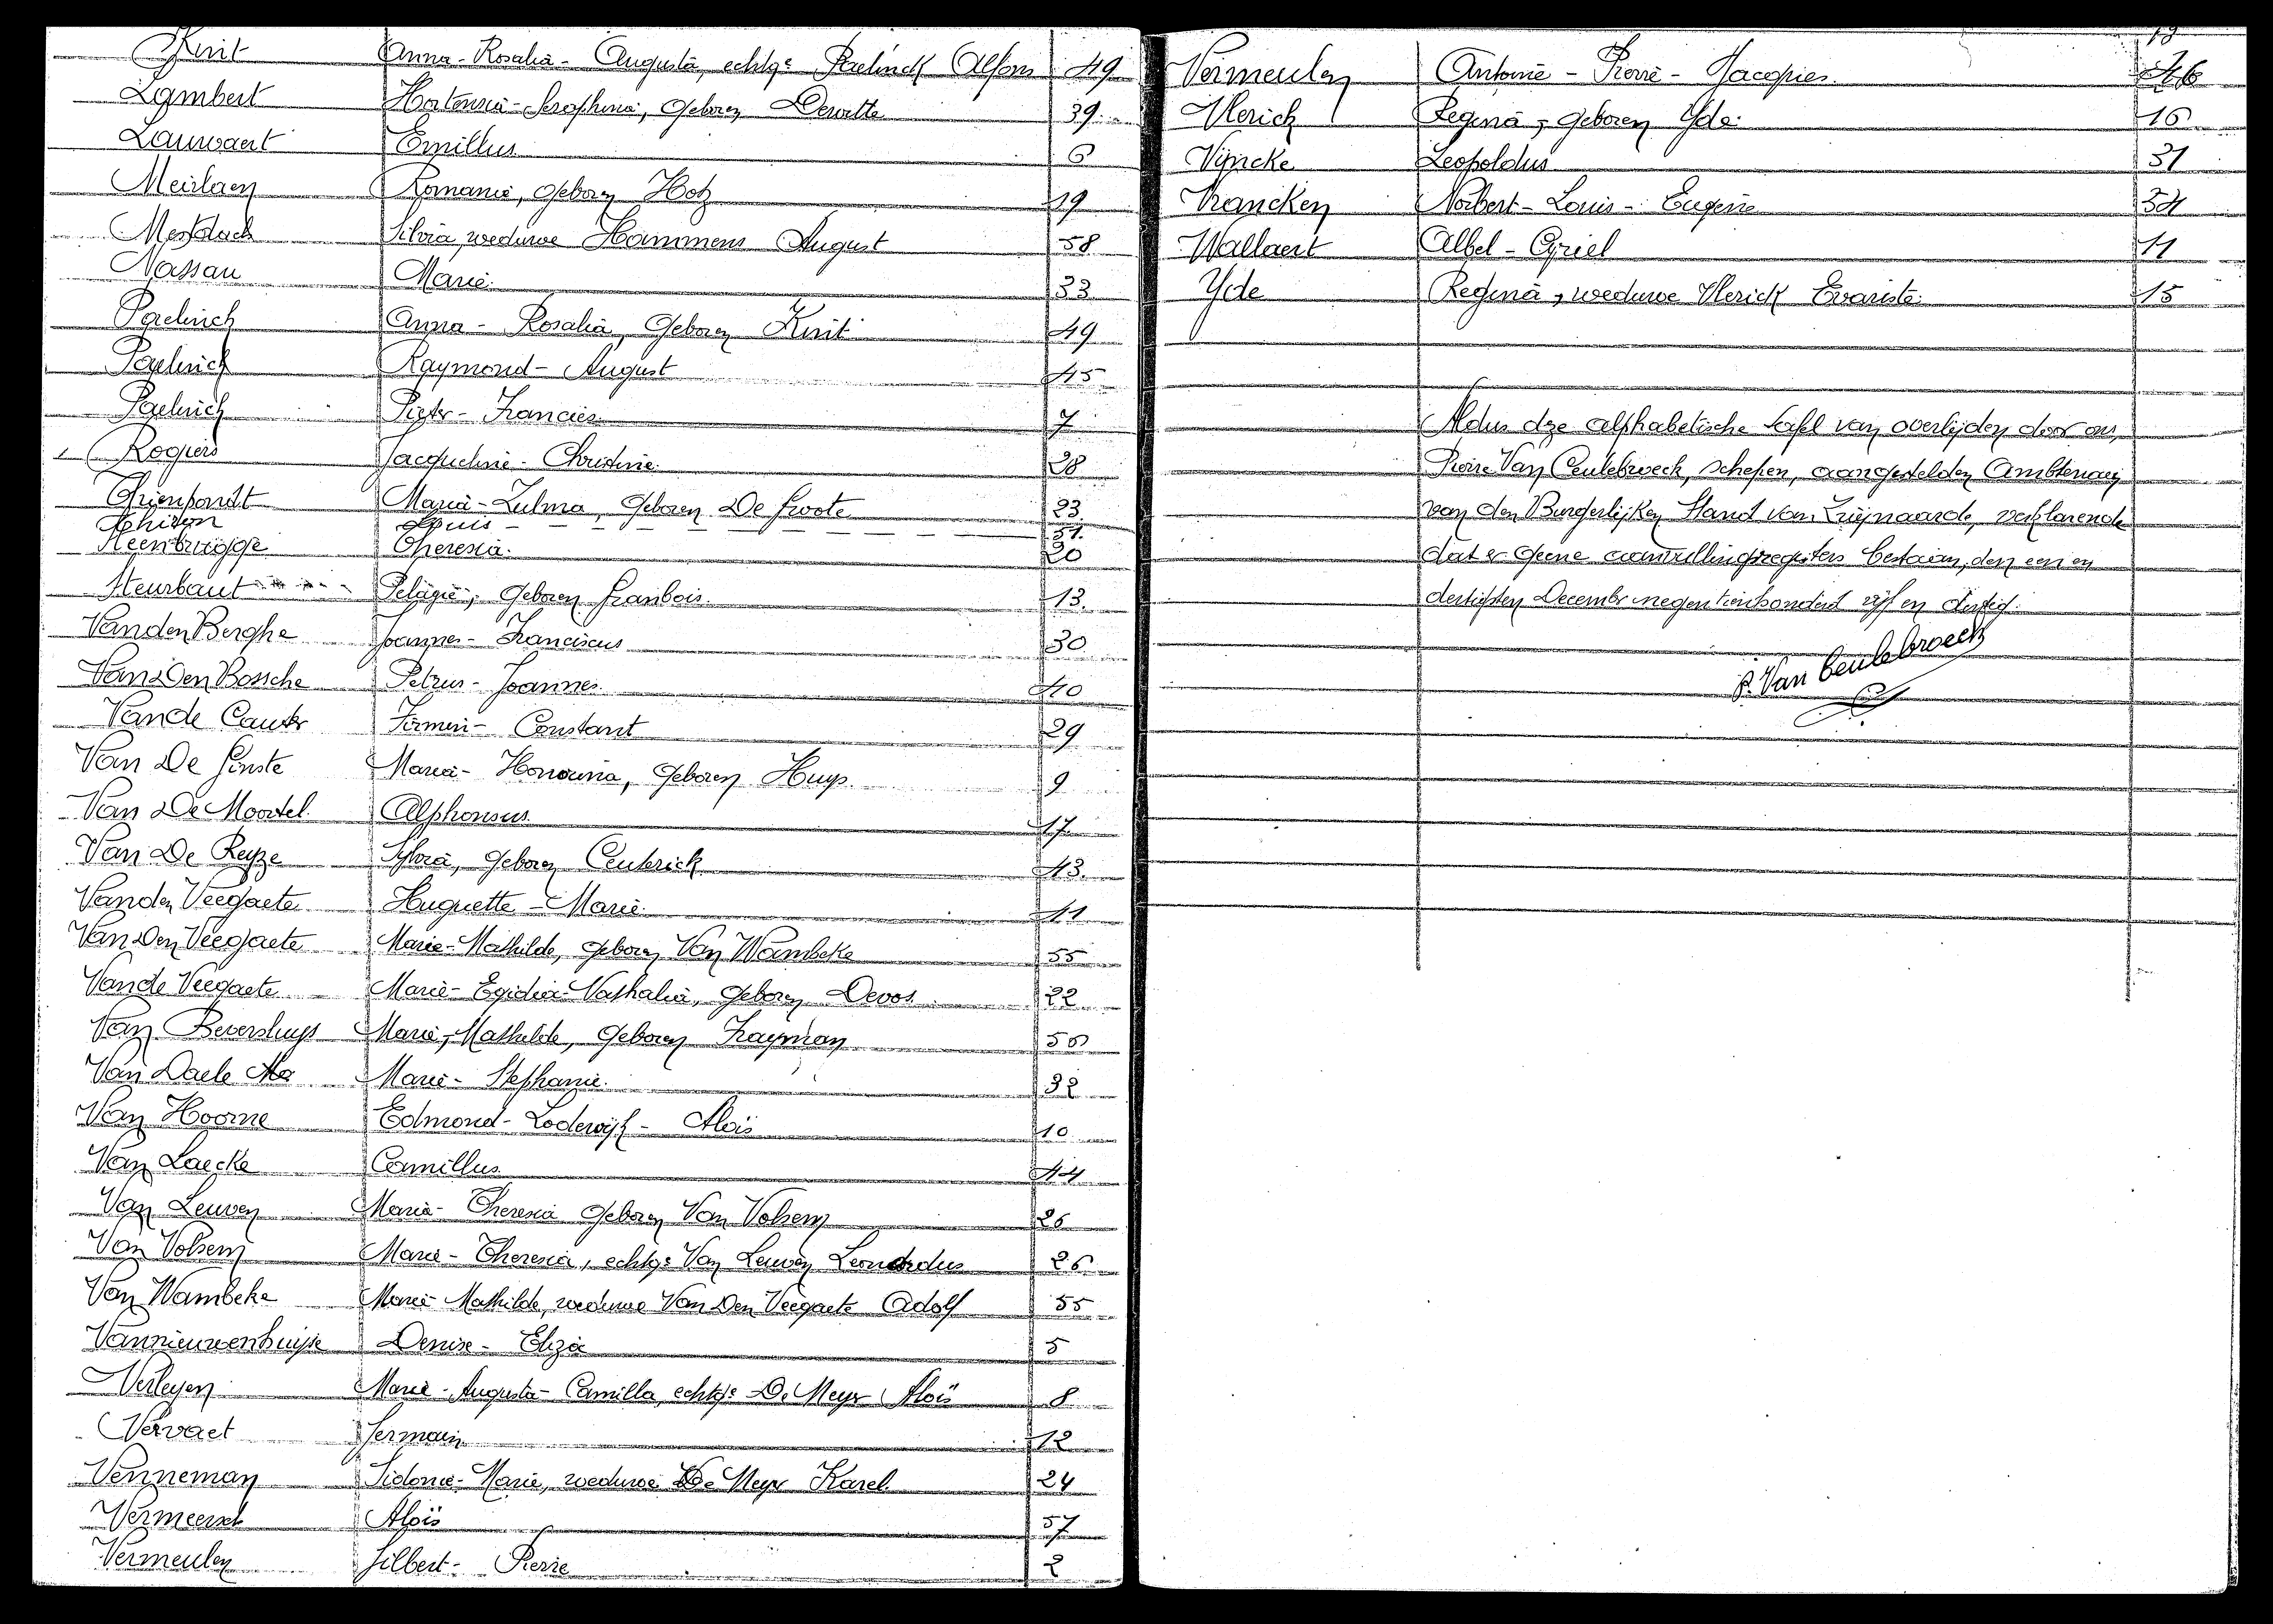 Knit Anna-Rosalia-Augusta, echtge Paelinck Alfons 49
Lambert Hortensia-Seraphina, geboren Dewitte 39
Lauwaert Emillus 6
Meirlaen Romanie, geboren Hotz 19
Mestdach Silvia, weduwe Hammens August 58
Nassau Marie. 33
Paelinck Anna-Rosalia, geboren Knit 49
Paelinck Raymond-August 45
Paelinck Pieter-Francies 7
Rogiers Jacqueline-Christine. 28
Thienpondt Maria-Zulma, geboren De Groote 23
Louis 51.
Steenbrugge Theresia. 20
Steurbaut Pelagie, geboren Franbois. 13.
Vanden Berghe Joannes-Franciscus 30
Van Den Bossche Petrus-Joannes. 40
Van de Cauter Firmin-Constant 29
Van De Ginste Maria-Honorina, geboren Huys. 9
Van De Moortel Alphonsus 17
Van De Reyze Sylvia, geboren Ceuterick 43.
Vanden Veegaete Huguette-Marie. 41
Van Den Veegaete Marie-Mathilde, geboren Van Wambeke 55
Van de Veegaete Marie-Egidia-Nathalia, geboren Devos. 22
Van Bevershuys Marie-Mathilde, geboren Frayman 50
Van Daele Marie-Stephanie. 32
Van Hoorne Edmond-Lodewijk-Aloïs 10
Van Laecke Camillus 44
Van Leuven Maria-Theresia geboren Van Volsem 26
Van Volsem Marie-Theresia, echtge Van Leuven Leonardus 26
Van Wambeke Marie-Mathilde, weduwe Van Den Veegaete Adolf 55
Vannieuwenhuijse Denise-Eliza 5
Verleyen Marie-Augusta-Camilla, echtge De Meyer Aloïs 8
Vervaet Germain 12
Venneman Sidonie-Marie, weduwe De Meyer Karel. 24
Vermeersch Aloïs 57
Vermeulen Gilbert-Pierre 2
Vermeulen Antoine-Pierre-Jacques.
Vlerick Regina, geboren Yde 15
Vijncke Leopoldus 31
Vrancken Norbert-Louis-Eugène 34
Wallaert Albel-Cyriel 11
Yde Regina, weduwe Vlerick Evariste. 15
Aldus deze alphabetische tafel van overlijden door ons,
Pierre Van Ceulebroeck, schepen, aangestelden Ambtenaar
van den Burgerlijken Stand van Zwijnaarde, verklarende
dat er geene aanvullingsregisters bestaan, den een en
dertigsten December negentienhonderd vijf en dertig.
P. Van Ceulebroeck